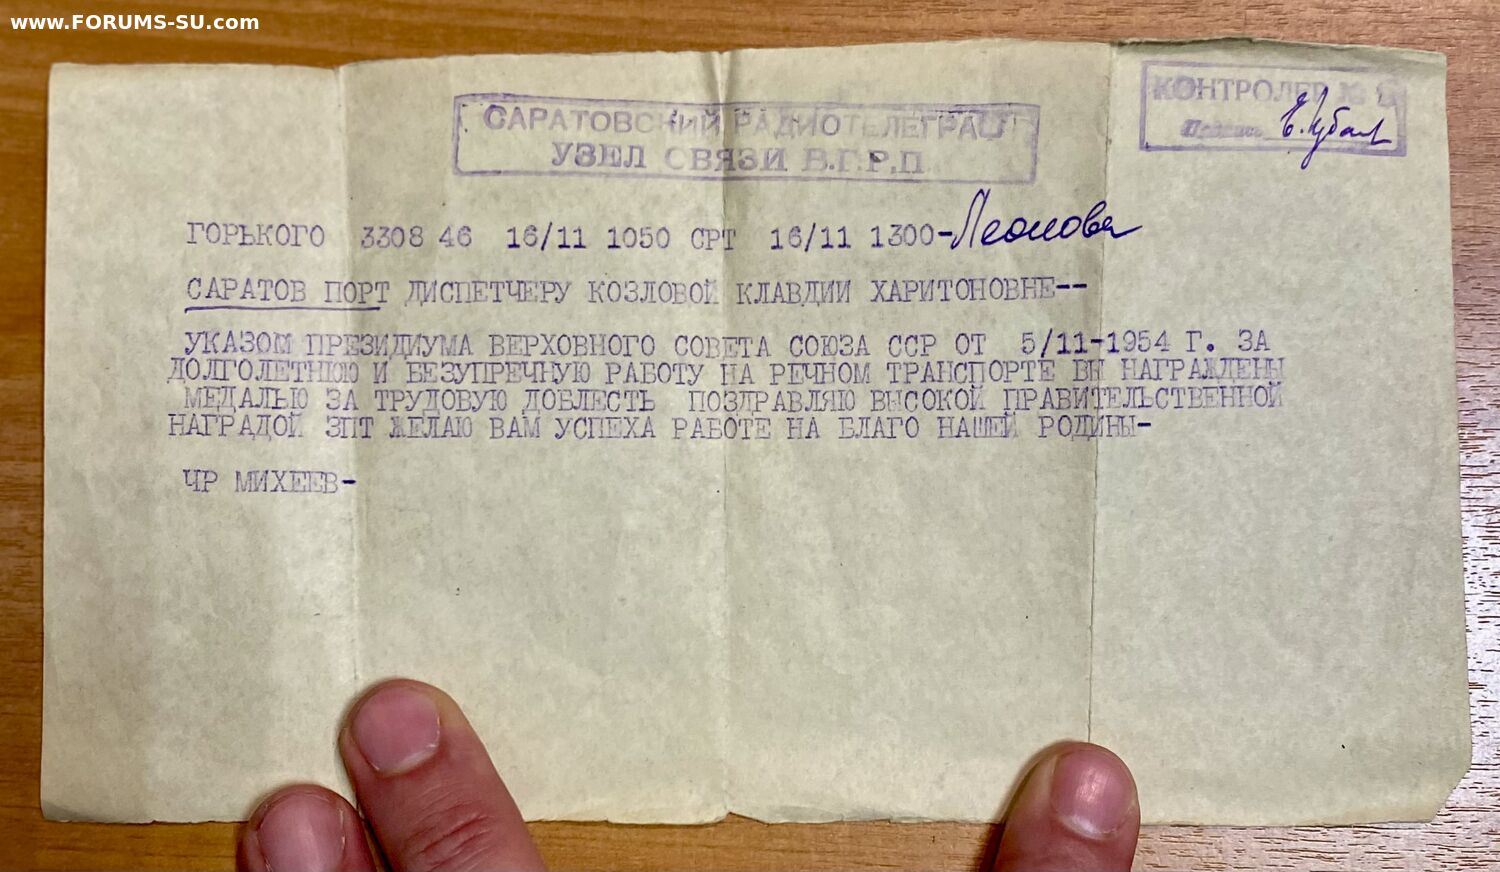 www.FORUMS-SU.com
КОНТРОЛЕР №
Подпись
САРАТОВСКИЙ РАДИОТЕЛЕГРАФ
УЗЕЛ СВЯЗИ В.Г.Р.П.
ГОРЬКОГО 3308 46 16/11 1050 СРТ 16/11 1300-Леонова
САРАТОВ ПОРТ ДИСПЕТЧЕРУ КОЗЛОВОЙ КЛАВДИИ ХАРИТОНОВНЕ--
УКАЗОМ ПРЕЗИДИУМА ВЕРХОВНОГО СОВЕТА СОЮЗА ССР ОТ 5/11-1954 Г. ЗА
ДОЛГОЛЕТНЮЮ И БЕЗУПРЕЧНУЮ РАБОТУ НА РЕЧНОМ ТРАНСПОРТЕ ВЫ НАГРАЖДЕНЫ
МЕДАЛЬЮ ЗА ТРУДОВУЮ ДОБЛЕСТЬ ПОЗДРАВЛЯЮ ВЫСОКОЙ ПРАВИТЕЛЬСТВЕННОЙ
НАГРАДОЙ ЗПТ ЖЕЛАЮ ВАМ УСПЕХА РАБОТЕ НА БЛАГО НАШЕЙ РОДИНЫ-
ЧР МИХЕЕВ-